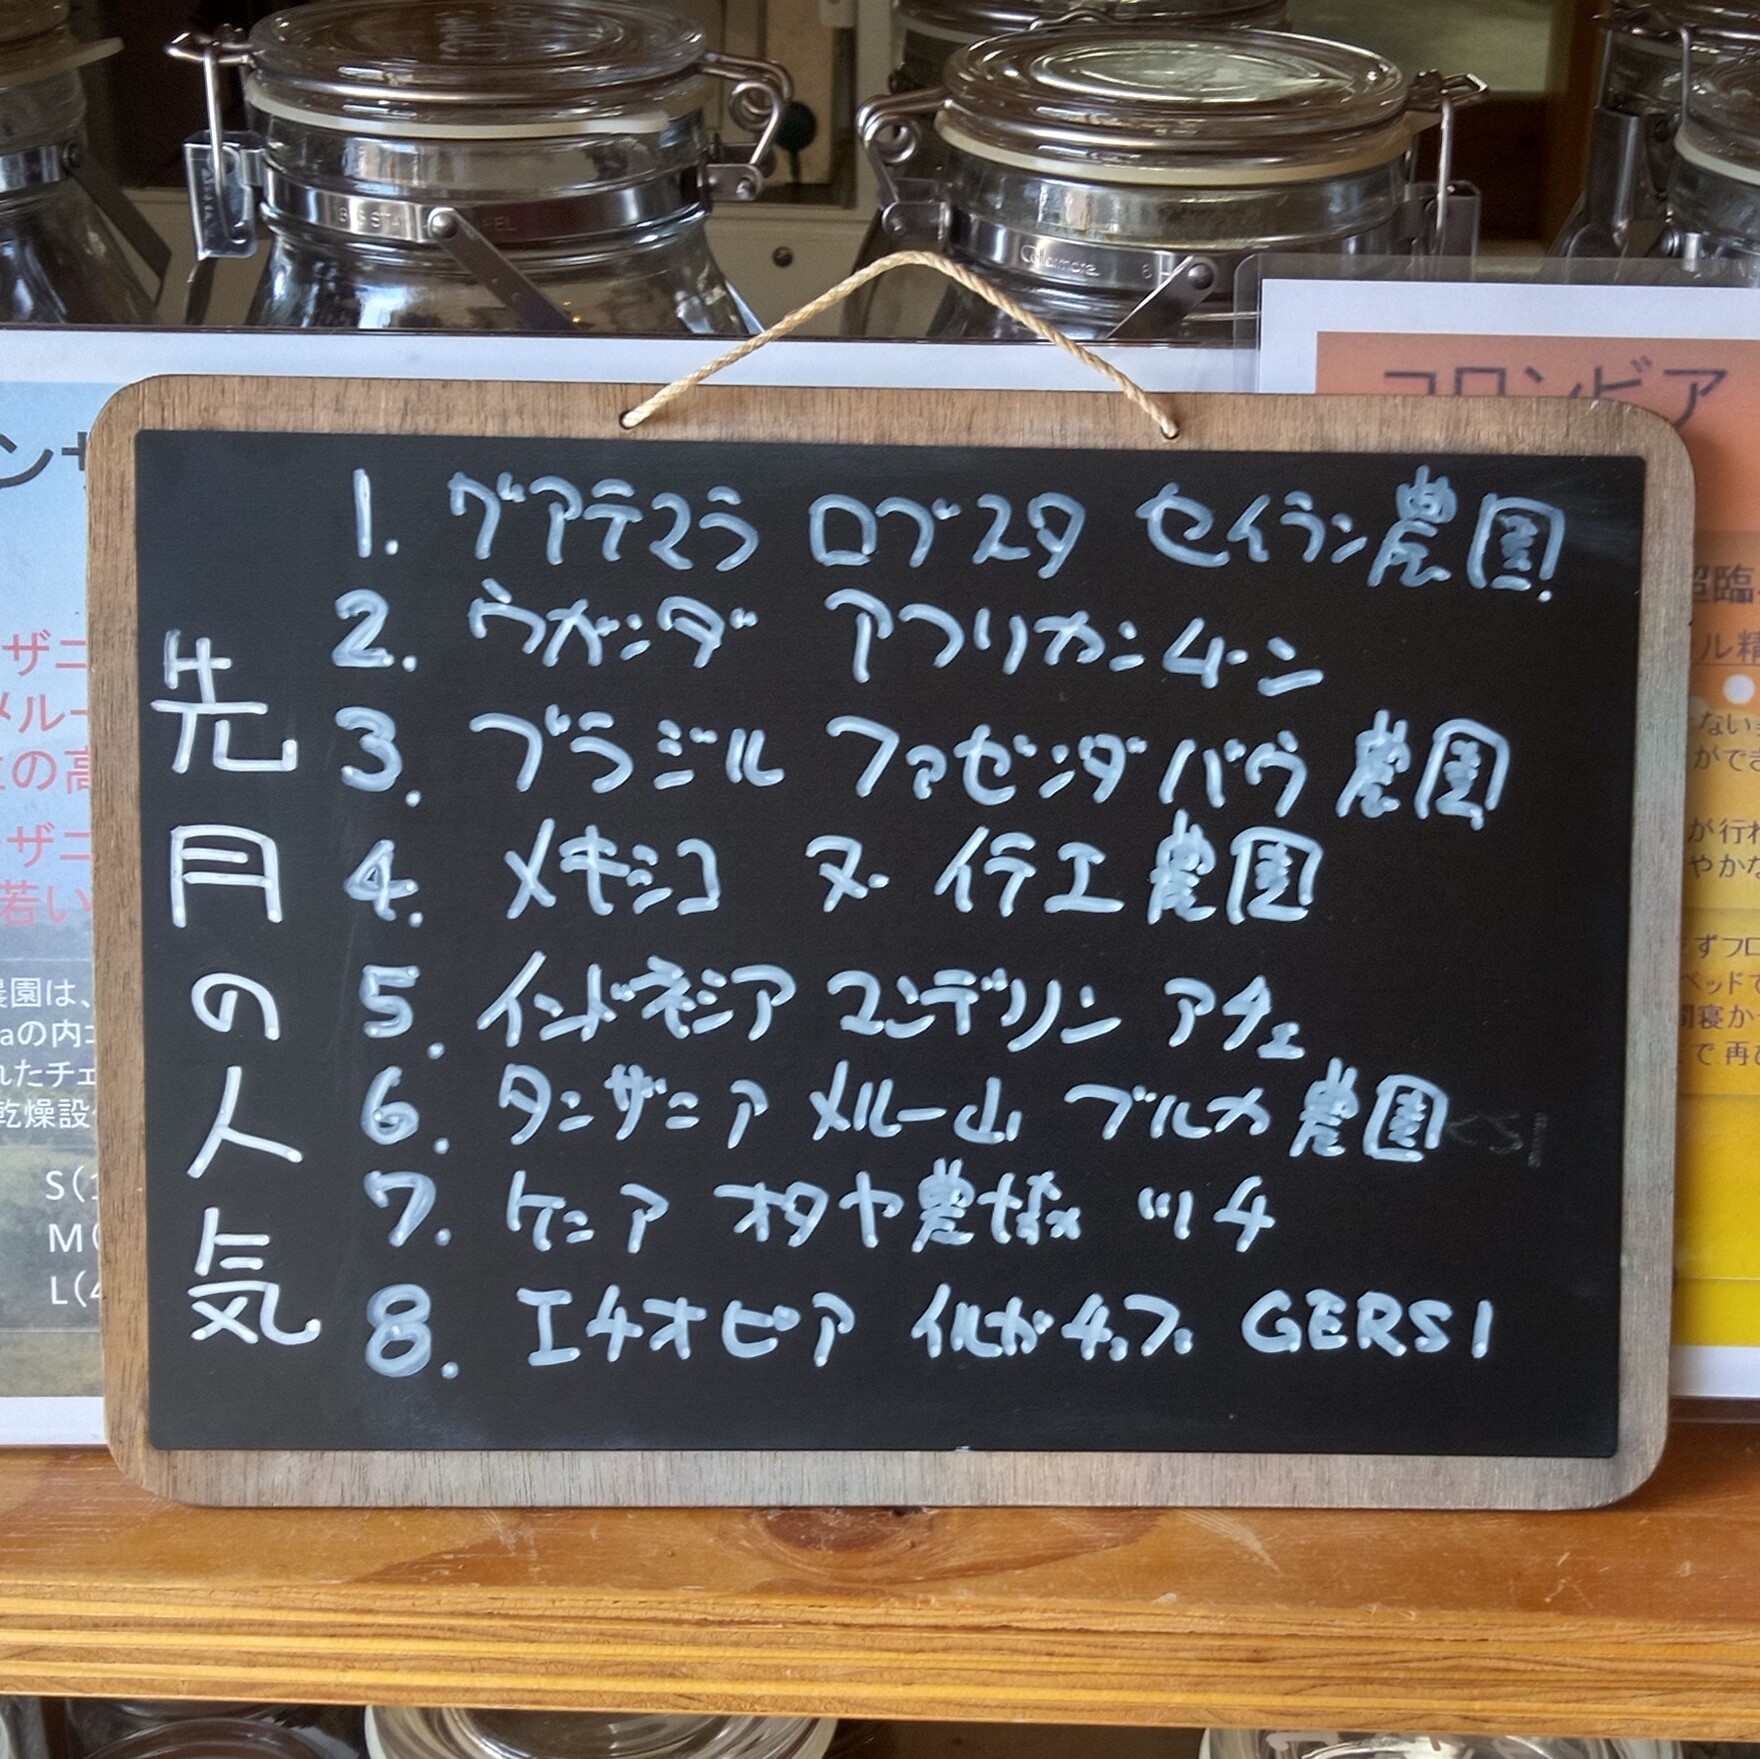 コロンビア
先月の人気
1. グアテマラ ロブスタ セイラン農園
2. ウガンダ アフリカンムーン
3. ブラジル ファゼンダバウ農園
4. メキシコ ヌーイテエ農園
5. インドネシア マンデリン アチェ
6. タンザニア メルー山 ブルカ農園
7. ケニア オタヤ農協 ツチ
8. エチオピア イルガチェフェ GERSI
ンザ
ザニ
メルー
の高
ザニ
若い
農園は、
aの内
れたチェ
乾燥設
S(1
M(
L(4
超臨
ル精
ない
ができ
が行わ
やかな
ずフロ
ベッドで
間寝か
で再び